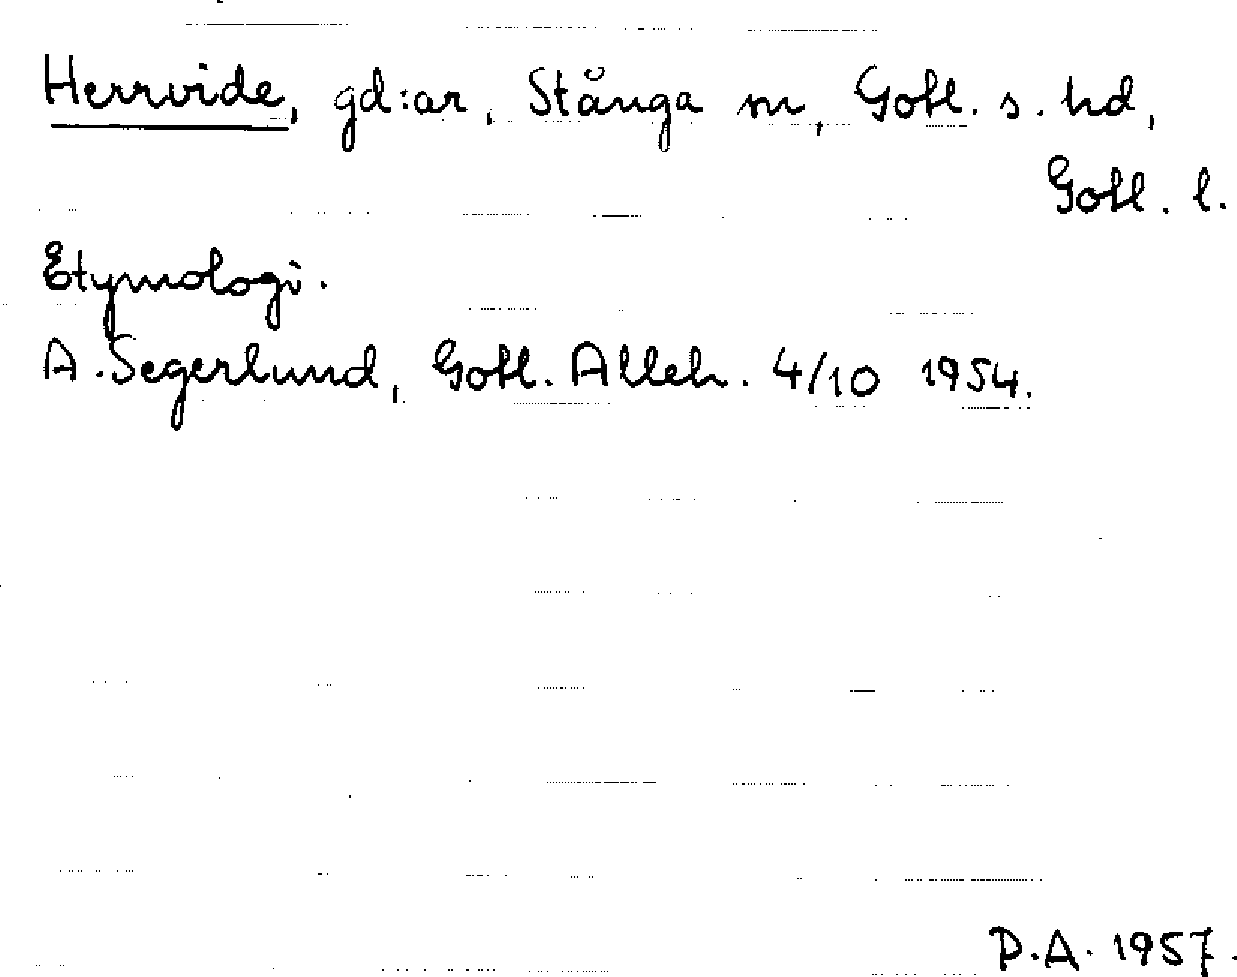 Herrvide, gd:ar, Stånga sn, Gotl. s. hd,
Gotl. l.
Etymologi.
A. Segerlund, Gotl. Alleh. 4/10 1954.
P.A. 1957.